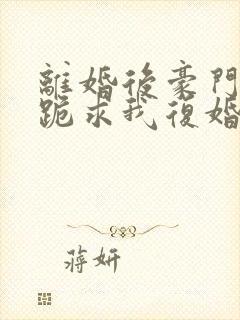 離婚後豪門
跪求我復婚
蔣妍